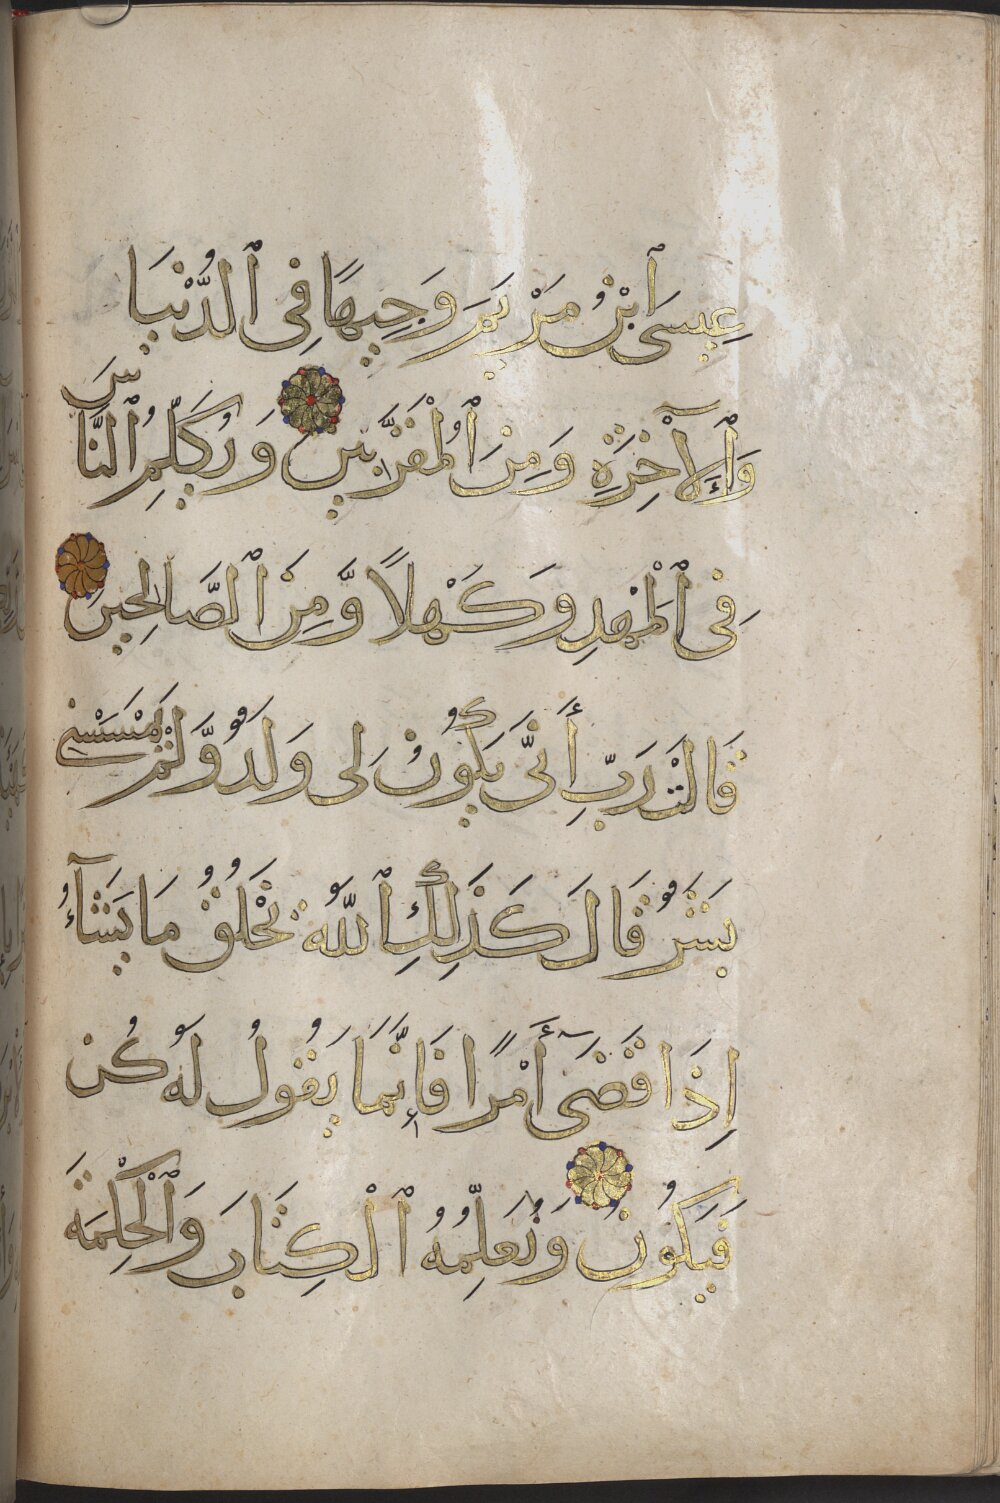 عِيسَى ٱبْنُ مَرْيَمَ وَجِيهًا فِى ٱلدُّنْيَا
وَٱلْءَاخِرَةِ وَمِنَ ٱلْمُقَرَّبِينَ وَيُكَلِّمُ ٱلنَّاسَ
فِى ٱلْمَهْدِ وَكَهْلًا وَّمِنَ ٱلصَّالِحِينَ
قَالَتْ رَبِّ أَنَّى يَكُونُ لِى وَلَدٌ وَّلَمْ يَمْسَسْنِى
بَشَرٌ قَالَ كَذَٰلِكِ ٱللَّهُ يَخْلُقُ مَا يَشَآءُ
إِذَا قَضَىٰٓ أَمْرًا فَإِنَّمَا يَقُولُ لَهُ كُن
فَيَكُونُ وَنُعَلِّمُهُ ٱلْكِتَابَ وَٱلْحِكْمَةَ